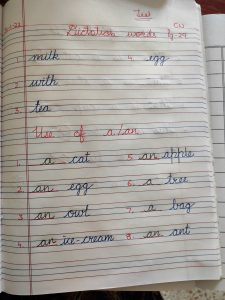 Test
Dictation words
CW
Pg. 29
1. milk 4. egg
2. with
3. tea
Use of a/an
1. a cat 5. an apple
2. an egg 6. a tree
3. an owl 7. a bag
4. an ice-cream 8. an ant